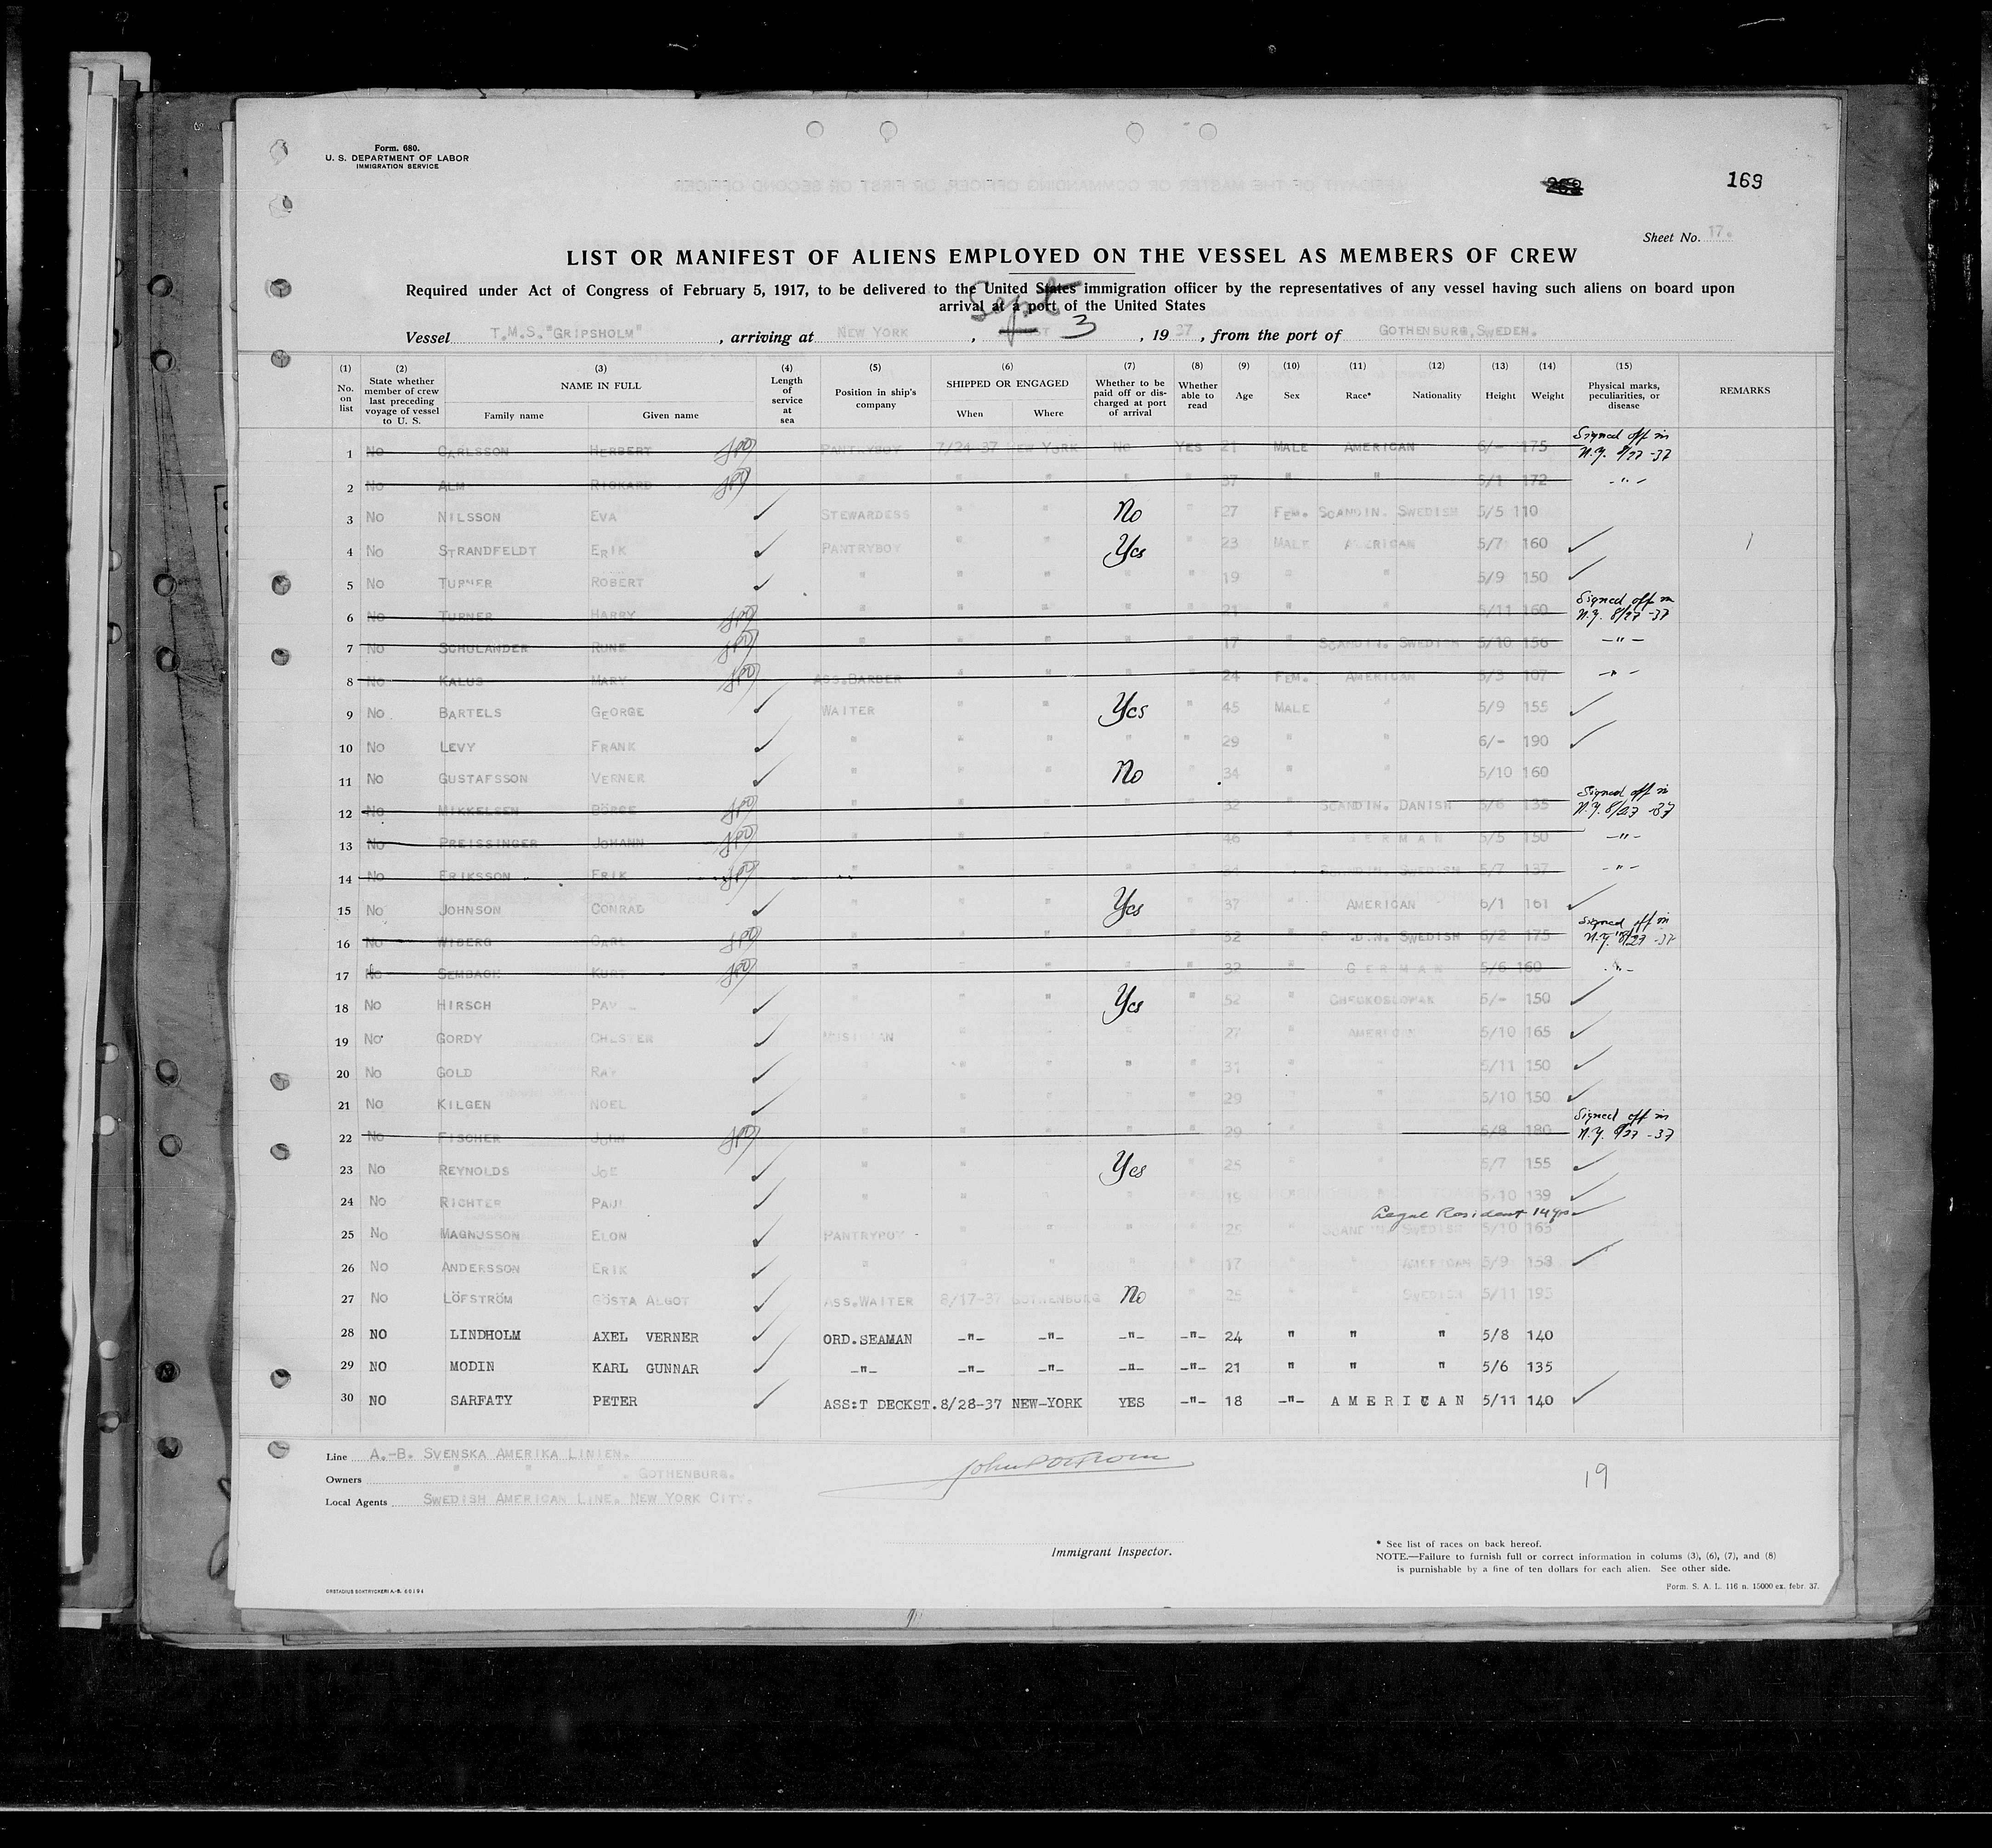 Form. 680.
U. S. DEPARTMENT OF LABOR
IMMIGRATION SERVICE
169
Sheet No. 17.
LIST OR MANIFEST OF ALIENS EMPLOYED ON THE VESSEL AS MEMBERS OF CREW
Required under Act of Congress of February 5, 1917, to be delivered to the United States immigration officer by the representatives of any vessel having such aliens on board upon
arrival at a port of the United States
Vessel T.M.S. "GRIPSHOLM", arriving at NEW YORK, Sept 3, 1937, from the port of GOTHENBURG, SWEDEN.
(1) No. on list (2) State whether member of crew last preceding voyage of vessel to U. S. (3) NAME IN FULL Family name Given name (4) Length of service at sea (5) Position in ship's company (6) SHIPPED OR ENGAGED When Where (7) Whether to be paid off or discharged at port of arrival (8) Whether able to read (9) Age (10) Sex (11) Race* (12) Nationality (13) Height (14) Weight (15) Physical marks, peculiarities, or disease REMARKS
1 No CARLSSON HERBERT PANTRYBOY 7/24-37 NEW YORK No YES 21 MALE AMERICAN 6/- 175 Signed off in N.Y. 8/27-37
2 No ALM RICKARD " " " " 37 " " 5/1 172 -"-
3 No NILSSON EVA STEWARDESS " " No " 27 FEM. SCANDIN. SWEDISH 5/5 110
4 No STRANDFELDT ERIK PANTRYBOY " " Yes " 23 MALE AMERICAN 5/7 160
5 No TURNER ROBERT " " " " " 19 " " 5/9 150
6 No TURNER HARRY " " " " " 21 " " 5/11 160 Signed off in N.Y. 8/27-37
7 No SCHULANDER RUNE " " " " " 17 " SCANDIN. SWEDISH 5/10 156 -"-
8 No KALUS MARY ASS.BARBER " " " " 24 FEM. AMERICAN 5/3 107 -"-
9 No BARTELS GEORGE WAITER " " Yes " 45 MALE " 5/9 155
10 No LEVY FRANK " " " " " 29 " " 6/- 190
11 No GUSTAFSSON VERNER " " " No " 34 " " 5/10 160
12 No MIKKELSEN BÖRGE " " " " " 32 " SCANDIN. DANISH 5/6 135 Signed off in N.Y. 8/27-37
13 No PREISSINGER JOHANN " " " " " 46 " GERMAN 5/5 150 -"-
14 No ERIKSSON ERIK " " " " " 34 " SCANDIN. SWEDISH 5/7 137 -"-
15 No JOHNSON CONRAD " " " Yes " 37 " AMERICAN 6/1 161
16 No WIBERG CARL " " " " " 32 " SWEDISH 6/2 175 Signed off in N.Y. 8/27-37
17 No SEMBACH KURT " " " " " 32 " GERMAN 5/6 160 -"-
18 No HIRSCH " " " Yes " 52 " CHECKOSLOVAK 5/- 150
19 No GORDY CHESTER MUSICIAN " " " " 27 " AMERICAN 5/10 165
20 No GOLD RAY " " " " " 31 " " 5/11 150
21 No KILGEN NOEL " " " " " 29 " " 5/10 150
22 No FISCHER JOHN " " " " " 29 " " 5/8 180 Signed off in N.Y. 8/27-37
23 No REYNOLDS JOE " " " Yes " 25 " " 5/7 155
24 No RICHTER PAUL " " " " " 19 " " 5/10 139
Legal Resident 14 yrs
25 No MAGNUSSON ELON PANTRYBOY " " " " 25 " SCANDIN. SWEDISH 5/10 165
26 No ANDERSSON ERIK " " " " " 17 " " AMERICAN 5/9 158
27 No LÖFSTRÖM GÖSTA ALGOT ASS.WAITER 8/17-37 GOTHENBURG No " 25 " " SWEDISH 5/11 195
28 NO LINDHOLM AXEL VERNER ORD.SEAMAN -"- -"- -"- -"- 24 " " " 5/8 140
29 NO MODIN KARL GUNNAR -"- -"- -"- -"- -"- 21 " " " 5/6 135
30 NO SARFATY PETER ASS:T DECKST. 8/28-37 NEW-YORK YES -"- 18 -"- AMERICAN 5/11 140
Line A.-B. SVENSKA AMERIKA LINIEN.
Owners " " " . GOTHENBURG.
19
Local Agents SWEDISH AMERICAN LINE. NEW YORK CITY.
Immigrant Inspector.
* See list of races on back hereof.
NOTE.—Failure to furnish full or correct information in colums (3), (6), (7), and (8)
is purnishable by a fine of ten dollars for each alien. See other side.
Form. S. A. L. 116 n. 15000 ex. febr. 37.